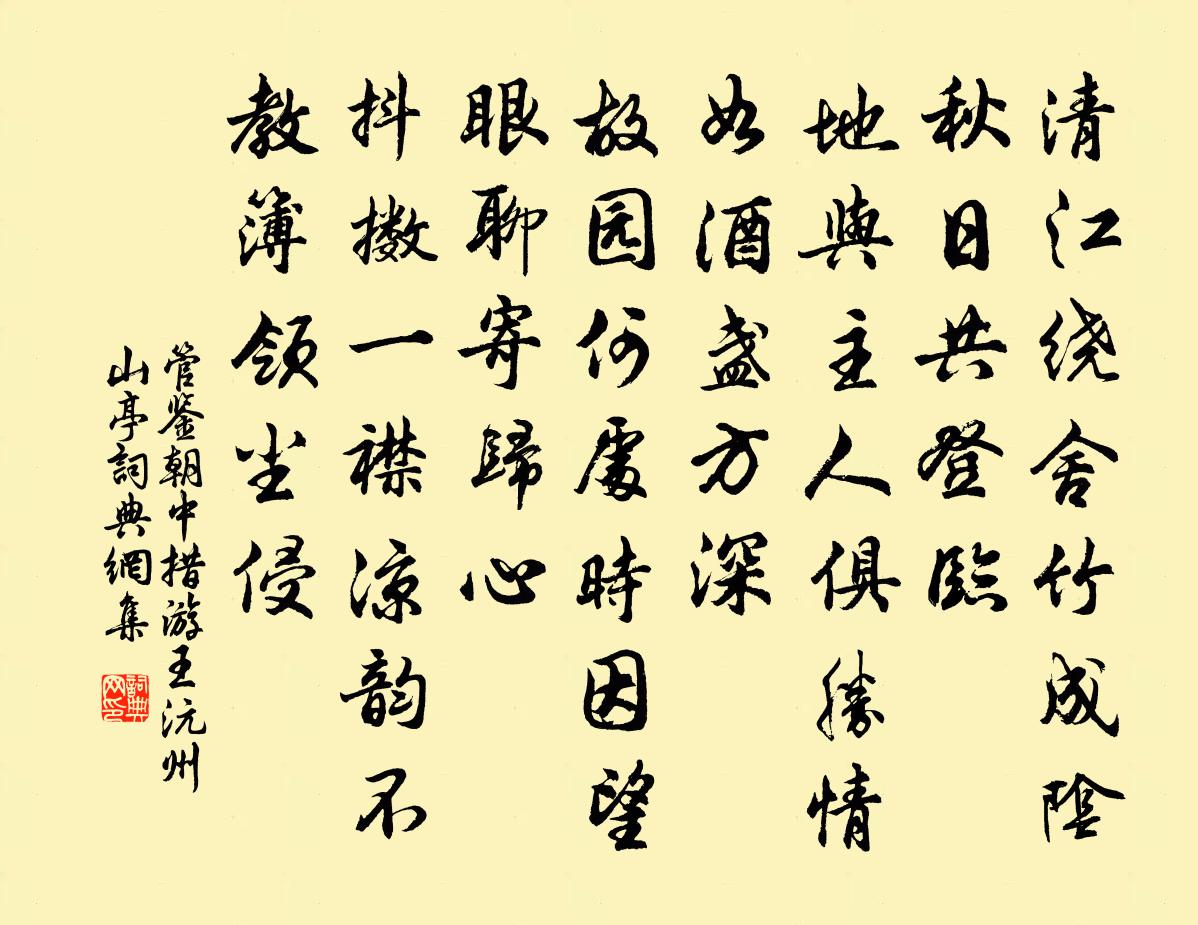 清江绕舍竹成陰
秋日共登臨
地與主人俱勝情
如酒盏方深
故园何處時因望
眼聊寄歸心
抖擻一襟凉韵不
教簿領尘侵
管鉴朝中措游王沅州
山亭詞典網集
詞典网印